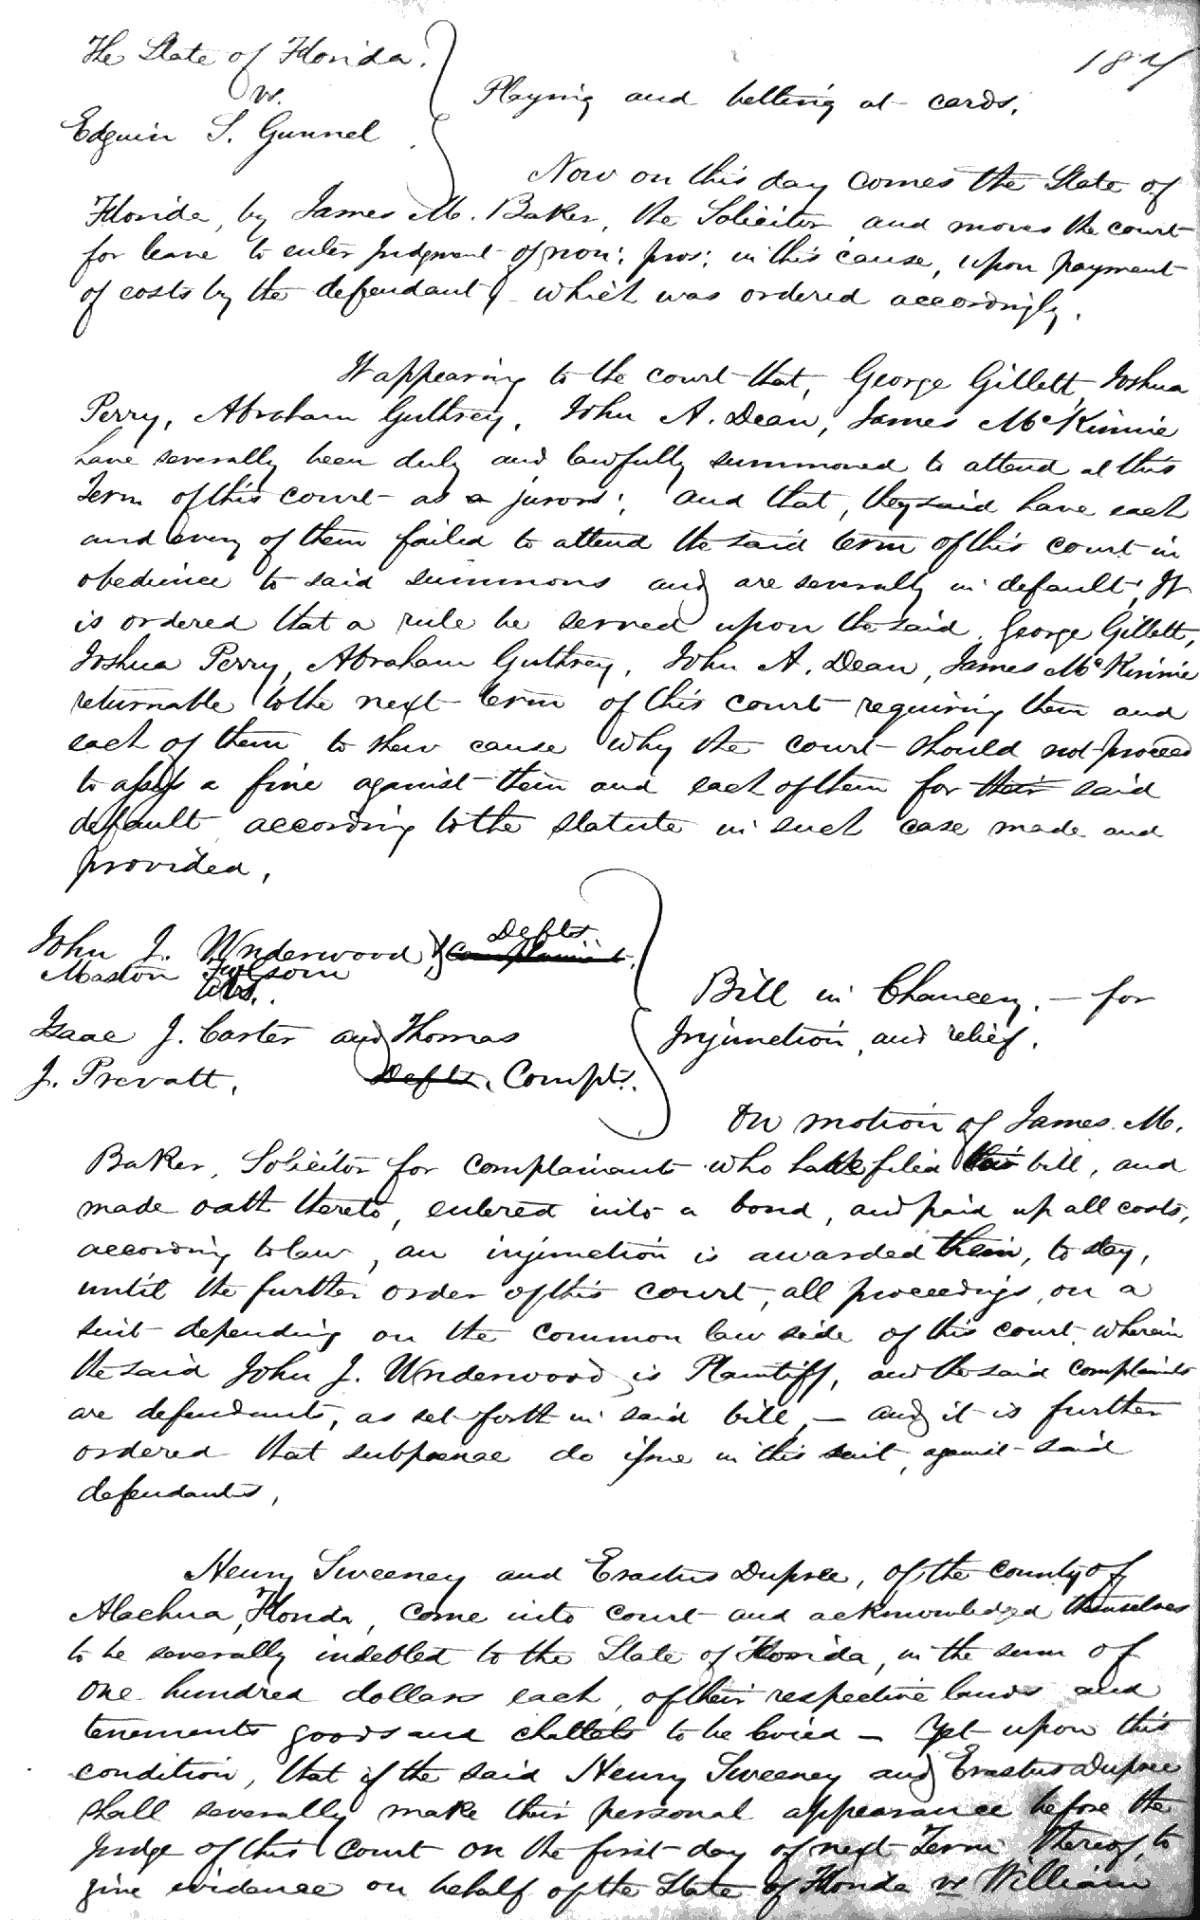 187
The State of Florida.
vs.
Edguin S. Gunnel
Playing and betting at cards.
Now on this day comes the State of
Florida, by James M. Baker, the Solicitor and moves the court
for leave to enter Judgment of non: pros: in this cause, upon payment
of costs by the defendant, which was ordered accordingly.
It appearing to the court that, George Gillett, Joshua
Perry, Abraham Guthrey, John A. Dean, James McKinnie
have severally been duly and lawfully summoned to attend at this
Term of this court as a jurors; and that, they said have each
and every of them failed to attend the said term of this court in
obedience to said summons and are severally in default; It
is ordered that a rule be served upon the said, George Gillett,
Joshua Perry, Abraham Guthrey, John A. Dean, James McKinnie
returnable to the next term of this court requiring them and
each of them to shew cause why the court should not proceed
to assess a fine against them and each of them for their said
default according to the statute in such case made and
provided,
John J. Underwood & Complainant. Defts
Maston Folsom
vs.
Isaac J. Carter and Thomas
J. Prevatt, Defts. Compts.
Bill in Chancery. - for
Injunction, and relief.
On motion of James. M.
Baker, Solicitor for complainants who have filed their bill, and
made oath thereto, entered into a bond, and paid up all costs,
according to law, an injunction is awarded them, to stay,
until the further order of this court, all proceedings, on a
suit depending on the common law side of this court, wherein
the said John J. Underwood, is Plaintiff, and the said complaints
are defendants, as set forth in said bill, - and it is further
ordered that subpoenae do issue in this suit, against said
defendants,
Henry Sweeney and Erastus Dupree, of the county of
Alachua, Florida, come into court and acknowledged themselves
to be severally indebted to the State of Florida, in the sum of
one hundred dollars each, of their respective lands and
tenements goods and chattels to be levied - Yet upon this
condition, that if the said Henry Sweeney and Erastus Dupree
shall severally make their personal appearance before the
Judge of this Court on the first day of next Term thereof, to
give evidence on behalf of the State of Florida vs William